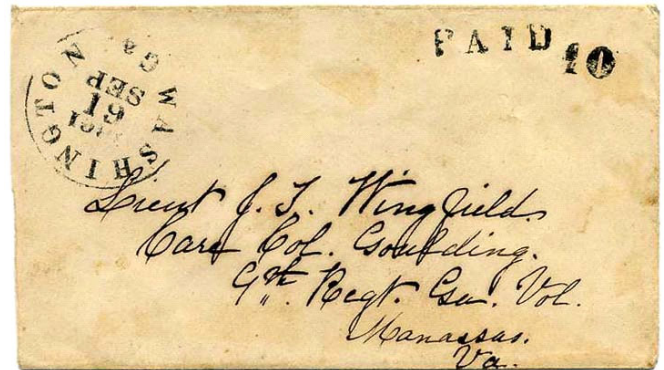 WASHINGTON Ga.
SEP
19
1861
PAID 10
Lieut J. T. Wingfield.
Care Col. Goulding.
9th. Regt. Ga. Vol.
Manassas.
Va.